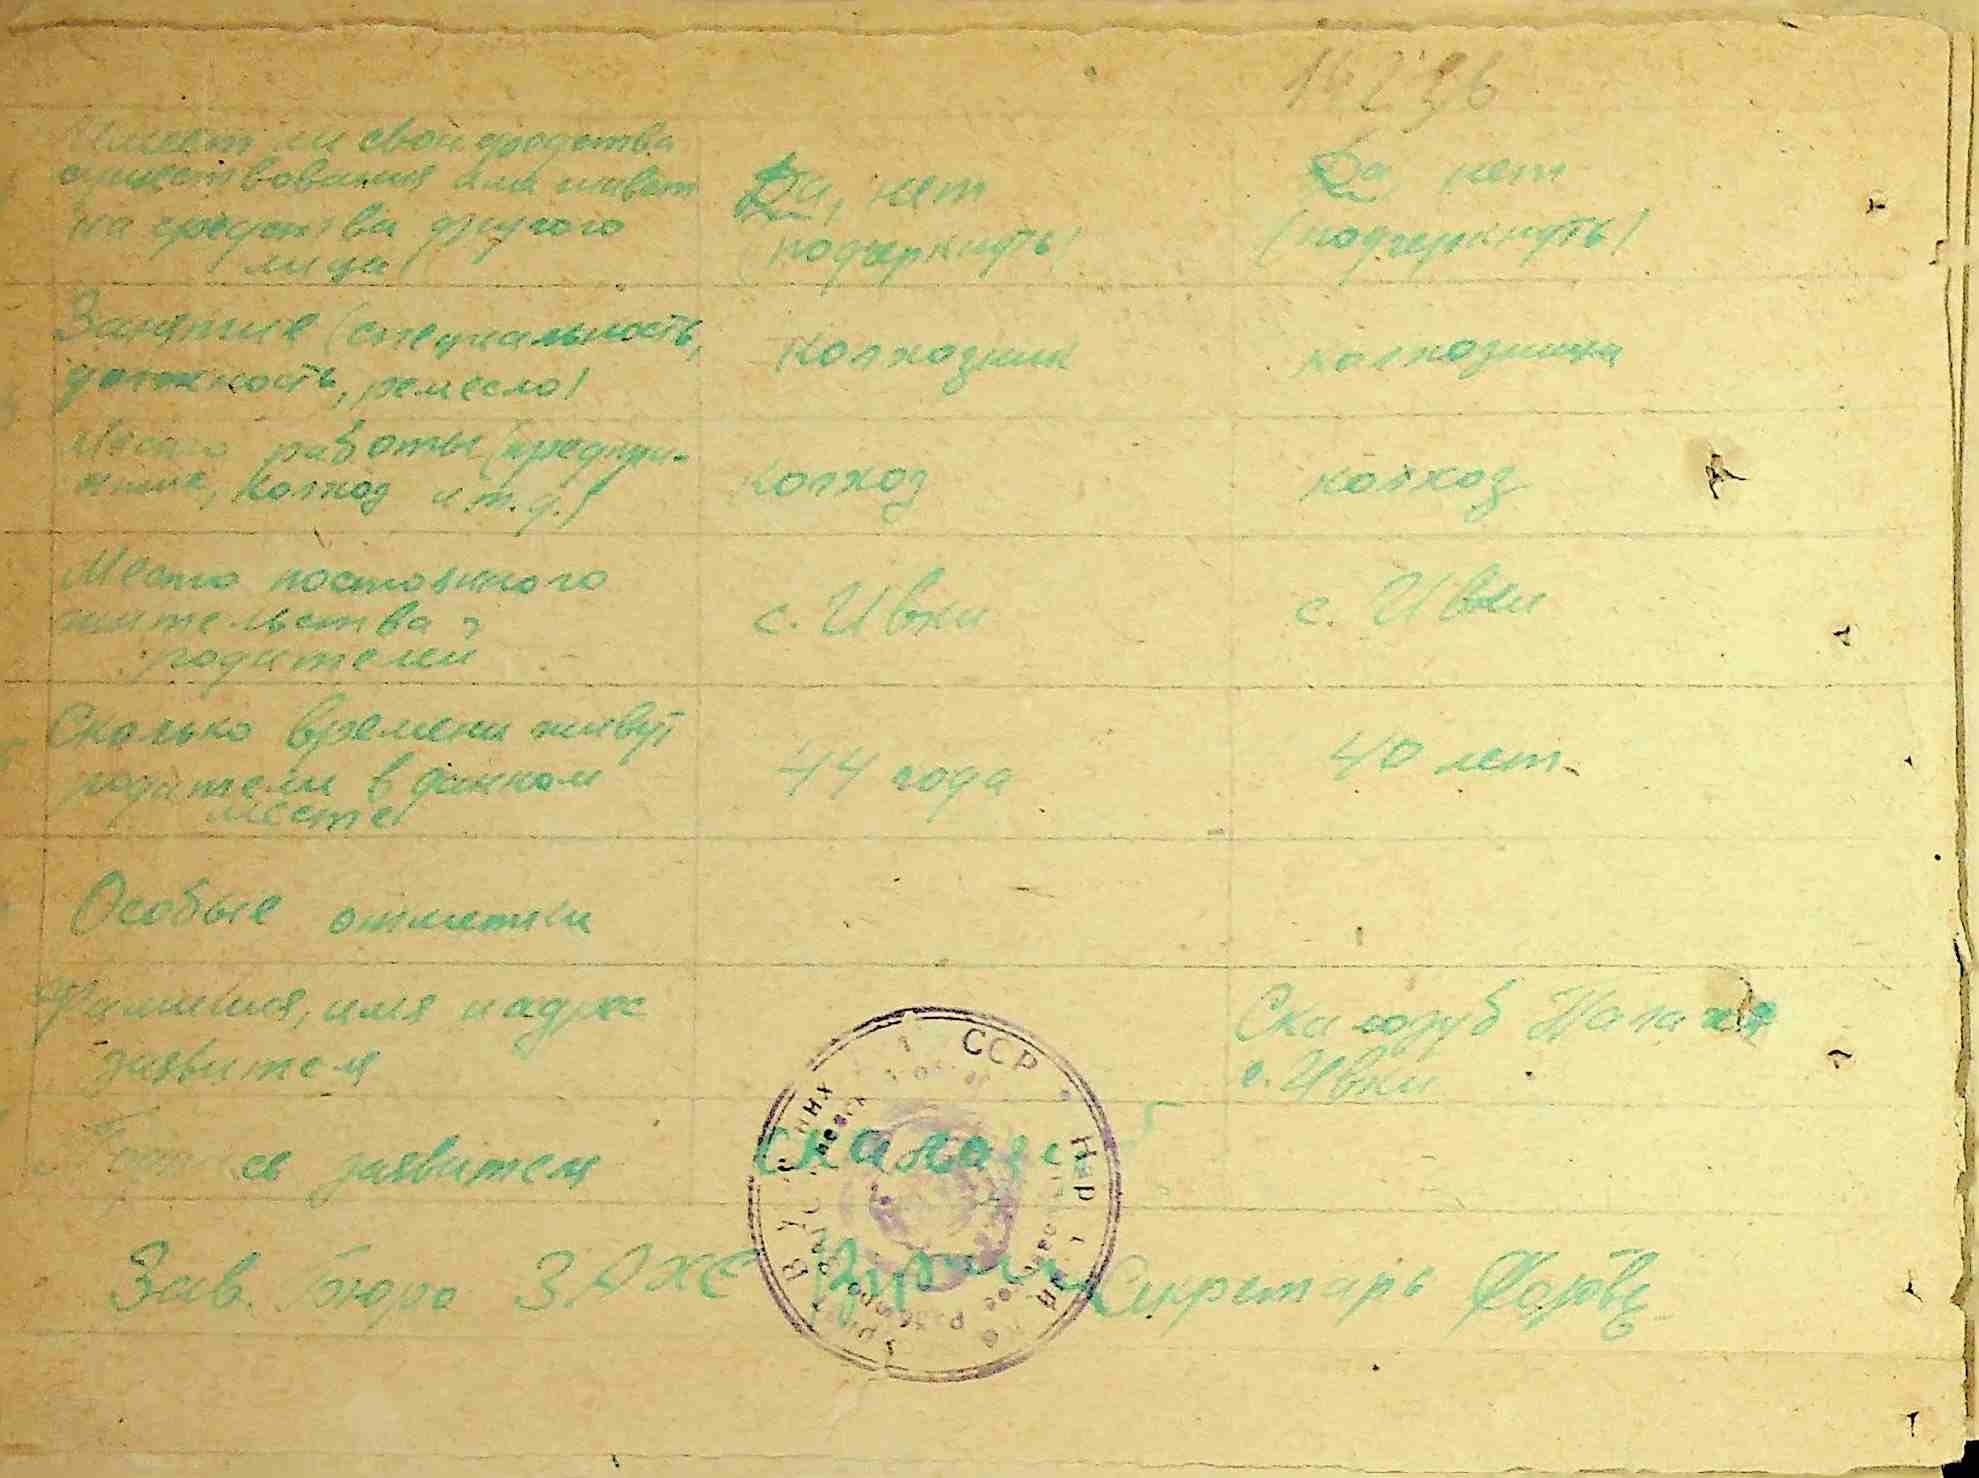 Имеет ли свои средства
существования или живет
на средства другого
лица
Да, нет
(подчеркнуть)
Да, нет
(подчеркнуть)
Занятие (специальность,
должность, ремесло)
Колхозник
колхозница
Место работы (предпри-
ятие, колхоз и т.д.)
колхоз
колхоз
Место постоянного
жительства
родителей
с. Ивки
с. Ивки
Сколько времени живут
родители в данном
месте
44 года
40 лет
Особые отметки
Фамилия, имя и адрес
заявителя
Скалозуб
с. Ивки
Подпись заявителя
Зав. Бюро ЗАГС
Секретарь
ССР